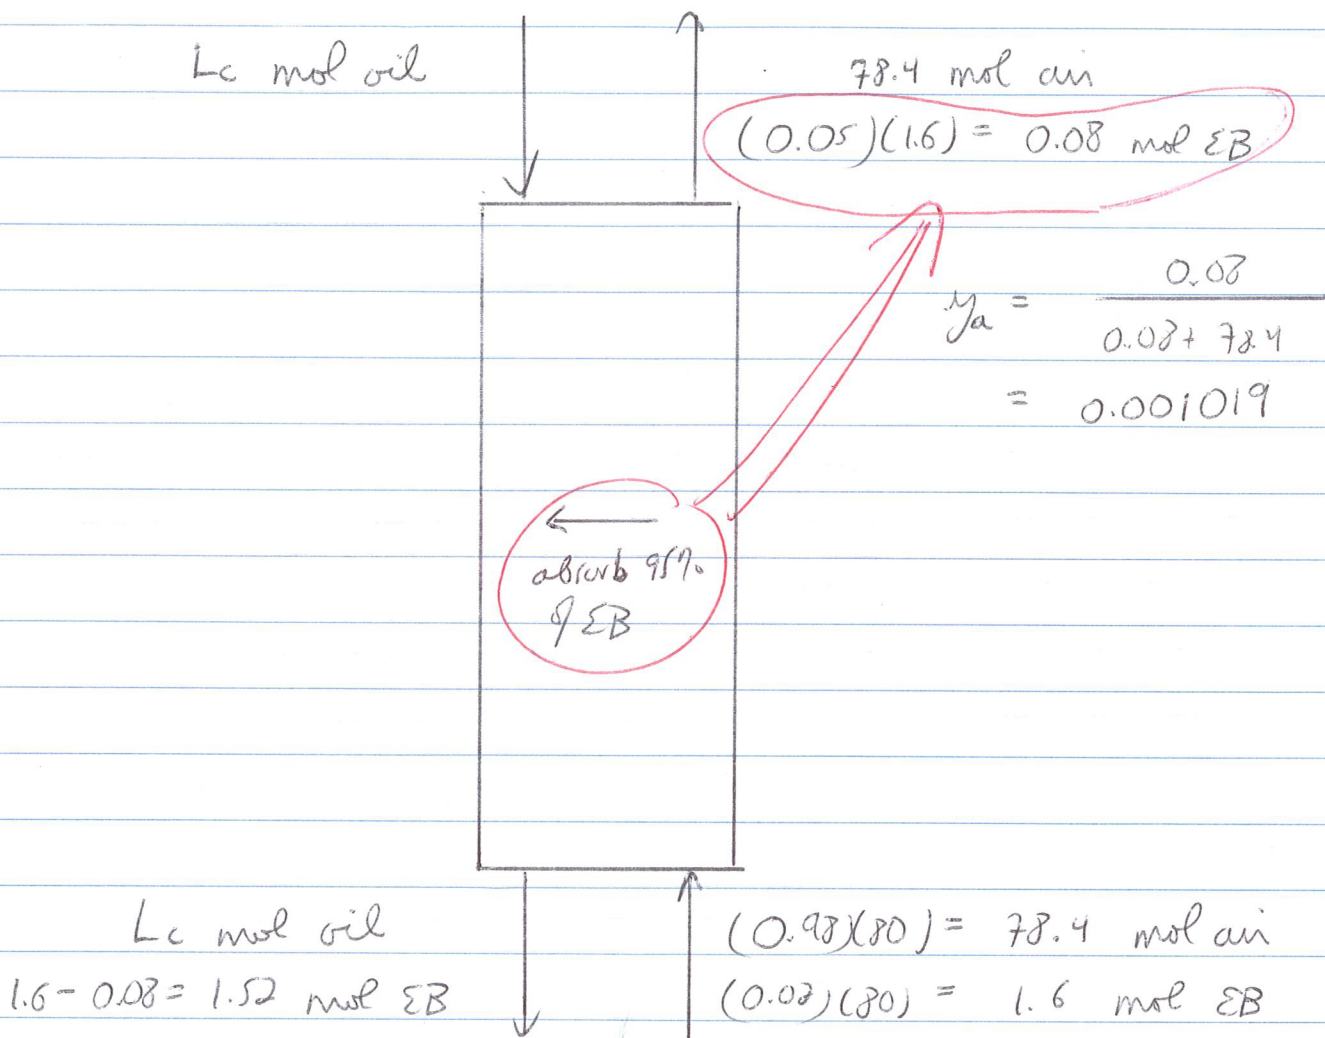 Lc mol oil
78.4 mol air
(0.05)(1.6) = 0.08 mol EB
ya = 0.08
0.08 + 78.4
= 0.001019
absorb 95%
of EB
Lc mol oil
(0.98)(80) = 78.4 mol air
1.6 - 0.08 = 1.52 mol EB
(0.02)(80) = 1.6 mol EB